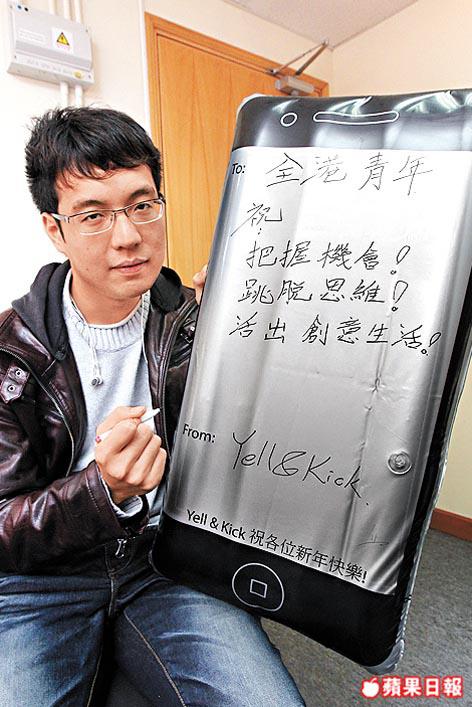 To: 全港青年
祝:
把握機會!
跳脫思維!
活出創意生活!
From: Yell & Kick.
Yell & Kick 祝各位新年快樂!
蘋果日報